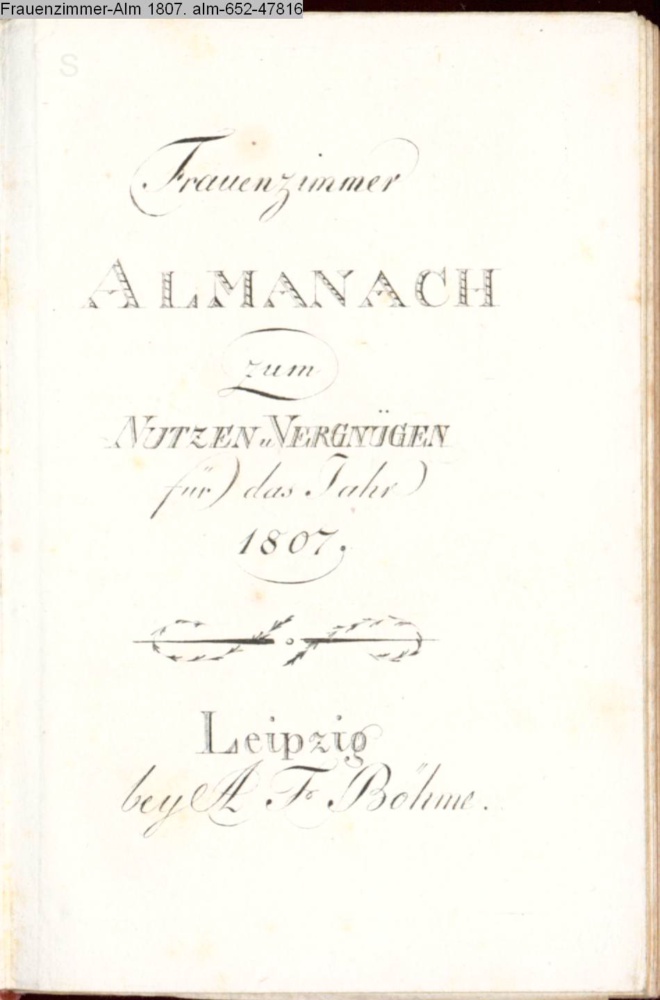 Frauenzimmer-Alm 1807. alm-652-47816
S
Frauenzimmer
ALMANACH
zum
NUTZEN u. VERGNÜGEN
für das Jahr
1807.
Leipzig
bey A F. Böhme.